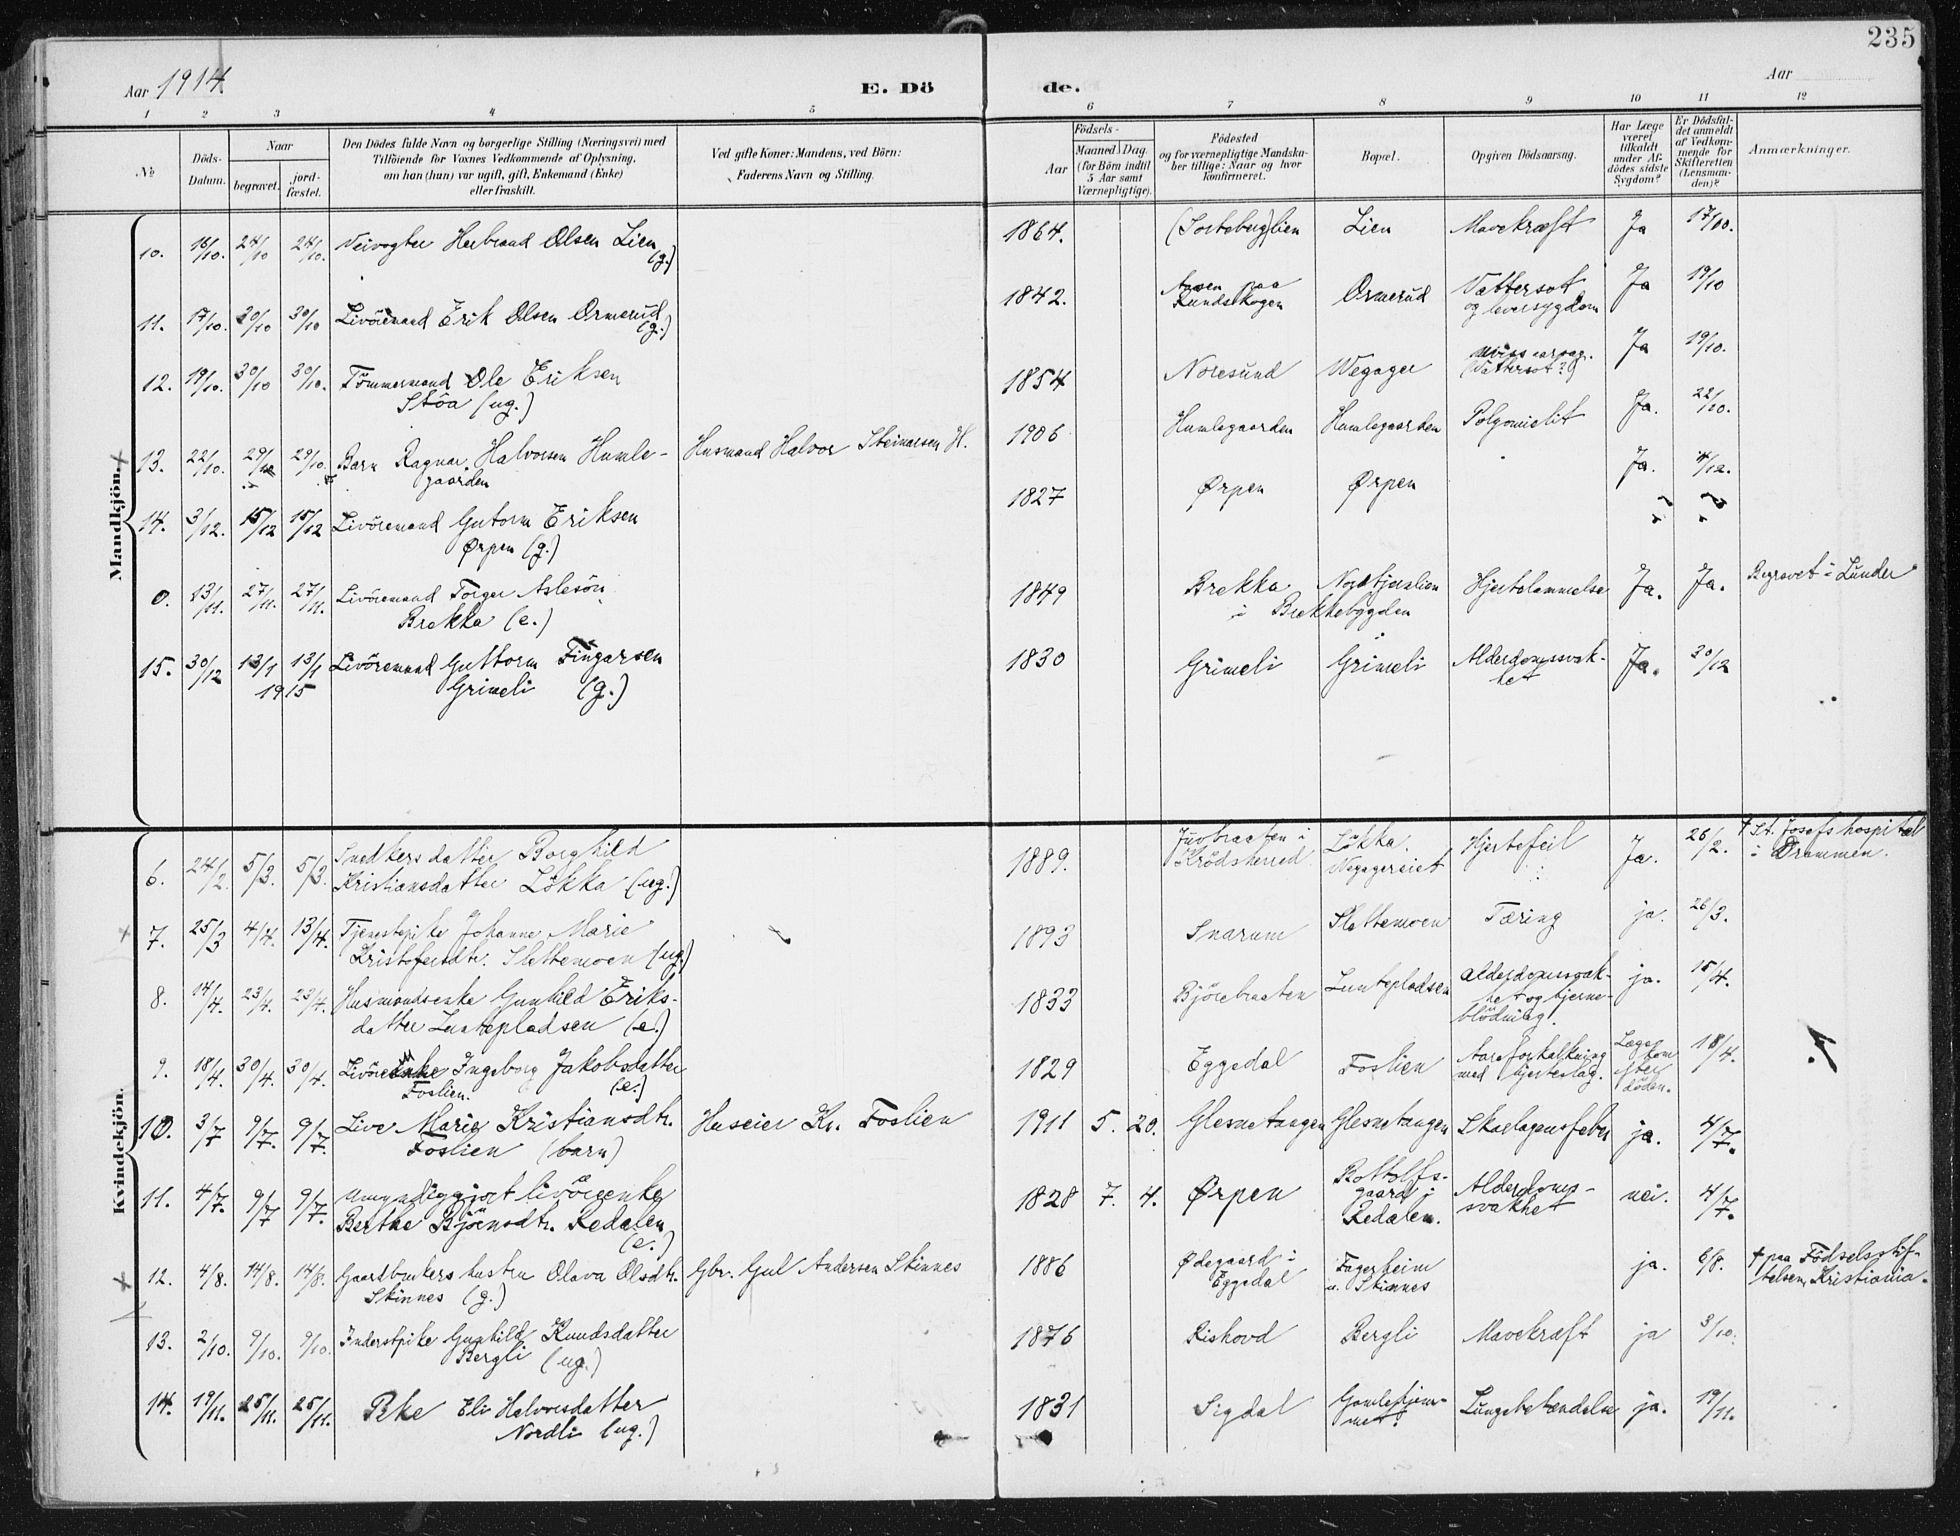 235
Aar 1914 E. Döde. Aar
1 2 3 4 5 6 7 8 9 10 11 12
№
Döds-Datum.
Naar
begravet.
jord-fæstet.
Den Dödes fulde Navn og borgerlige Stilling (Næringsvei) med
Tilföiende for Voxnes Vedkommende af Oplysning,
om han (hun) var ugift, gift, Enkemand (Enke)
eller fraskilt.
Ved gifte Koner: Mandens, ved Börn:
Faderens Navn og Stilling.
Födsels-
Aar
Maaned Dag
(for Börn indtil
5 Aar samt
Værnepligtige).
Födested
og for værnepligtige Mandska-
ber tillige: Naar og hvor
konfirmeret.
Bopæl.
Opgiven Dödsaarsag.
Har Læge
været
tilkaldt
under Af-
dödes sidste
Sygdom?
Er Dödsfal-
det anmeldt
af Vedkom-
mende for
Skifteretten
(Lensman-
den)?
Anmærkninger.
Mandkjön.
10. 16/10. 24/10 24/10. Veivogter Herbrand Olsen Lien (g.) 1864. (Sorteberg)lien Lien Mavekræft Ja 17/10.
11. 17/10. 20/10 30/10 Livöremand Erik Olsen Ormerud (g.) 1842. Aasen paa Rundskogen Ormerud Vattersot og leversygdom Ja 19/10
12. 19/10. 30/10 30/10. Tömmermand Ole Eriksen
Stöa (ug.) 1854 Noresund Wegager (Vattersot?) Ja 19/10.
13. 22/10. 29/10 29/10. Barn Ragnar Halvorsen Humle-
gaarden Husmand Halvor Steinarsen H. 1906 Humlegaarden Humlegaarden Ja. 22/10.
14. 3/12. 15/12 15/12 Livöremand Gutorm Eriksen
Ørpen (g.) 1827 Ørpen Ørpen Ja. 4/12.
0. 13/11. 27/11. 27/11. Livöremand Torger Aslesön
Brekka (e.) 1849 Brekka i Brekkebygden Hjertelammelse Ja. Ja. Begravet i Lunder
15. 30/12 13/1 13/1 Livöremand Guttorm Fingarsen
1915 Grimeli (g.) 1830 Grimeli Grimeli Alderdomssvak-
het Ja. 30/12
Kvindekjön.
6. 24/2. 5/3. 5/3. Snedkersdatter Borghild
Kristiansdatter Lökka (ug.) 1889. Juvbraaten i Krödsherred Lökka. Wegagereiet Hjertefeil Ja. 26/2. † St. Josefs hospital
i Drammen.
7. 25/3 4/4. 13/4. Tjenestepike Johanne Marie
Kristofersdtr. Slettemoen (ug.) 1893 Snarum Slettemoen Tæring ja. 26/3.
8. 14/4 23/4. 23/4. Husmandsenke Gunhild Eriks-
datter Luntepladsen (e.) 1833 Björebraaten Luntepladsen Alderdomssvak-
het og hjerne-
blödning. ja. 15/4.
9. 18/4. 30/4. 30/4. Ingeborg Jakobsdatter
Foslien. (e.) 1829 Eggedal Foslien Aareforkalkning
med hjerteslag. Læge kom efter döden. 18/4.
10. 3/7 9/7. 9/7. Live Marie Kristiansdtr.
Foslien (barn) Huseier Kr. Foslien 1911 5. 20. Glesnetangen Glesnetangen Skarlagensfeber ja. 4/7.
11. 4/7. 9/7 9/7. Umyndiggjort livörenke
Berthe Björnsdtr. Redalen
(e.) 1828 7. 4. Ørpen Bottolfs-
gaard i
Redalen. Alderdoms-
svakhet nei. 4/7.
12. 4/8. 14/8. 14/8. Gaardbrukers hustru Olava Olsdtr.
Skinnes (g.) Gbr. Gul Andersen Skinnes 1886 Ødegaard i
Eggedal Fagerheim
u. Skinnes ja. 6/8. † paa Födselsstif-
telsen, Kristiania.
13. 2/10. 9/10. 9/10. Inderstpike Gunhild Knudsdatter
Bergli (ug.) 1876 Rishovd Bergli Mavekræft ja 3/10.
14. 19/11. 25/11. 25/11. Pike Eli Halvorsdatter
Nordli (ug.) 1831 Sigdal Gamlehjem-
met. Lungebetændelse ja. 19/11.